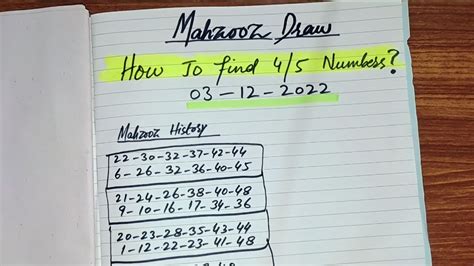 Mahzooz Draw
How To find 4/5 Numbers?
03-12-2022
Mahzooz History
22-30-32-37-42-44
6-26-32-36-40-45
21-24-26-38-40-48
9-10-16-17-34-36
20-23-28-35-43-44
1-12-22-23-41-48